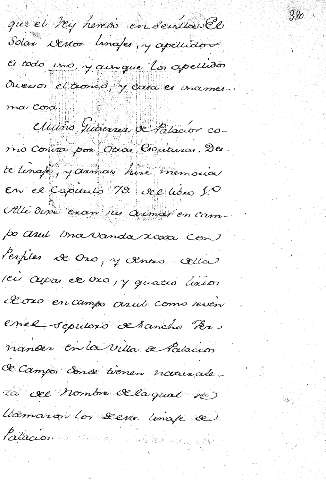 380
que el Rey heredó en Sevilla. El
Solar destos linajes, y apellidos
es todo uno, y aunque los apellidos
diversos el tronco, y casa es una mes-
ma cosa.
Muño Gutierrez de Palacios co-
mo consta por otras Escrituras. Des-
te linaje, y armas hice memoria
en el Capitulo 72 del libro 5º
Alli dixe eran sus armas en cam-
po azul una vanda roxa con
Perfiles de Oro, y dentro della
seis aspas de oro, y quatro lirios
de oro en campo azul como se ven
en el sepulcro de Sancho Fer-
nandez en la Villa de Palacios
de Campos donde tienen naturale-
za del Nombre de la qual se
llamaron los deste linaje de
Palacios